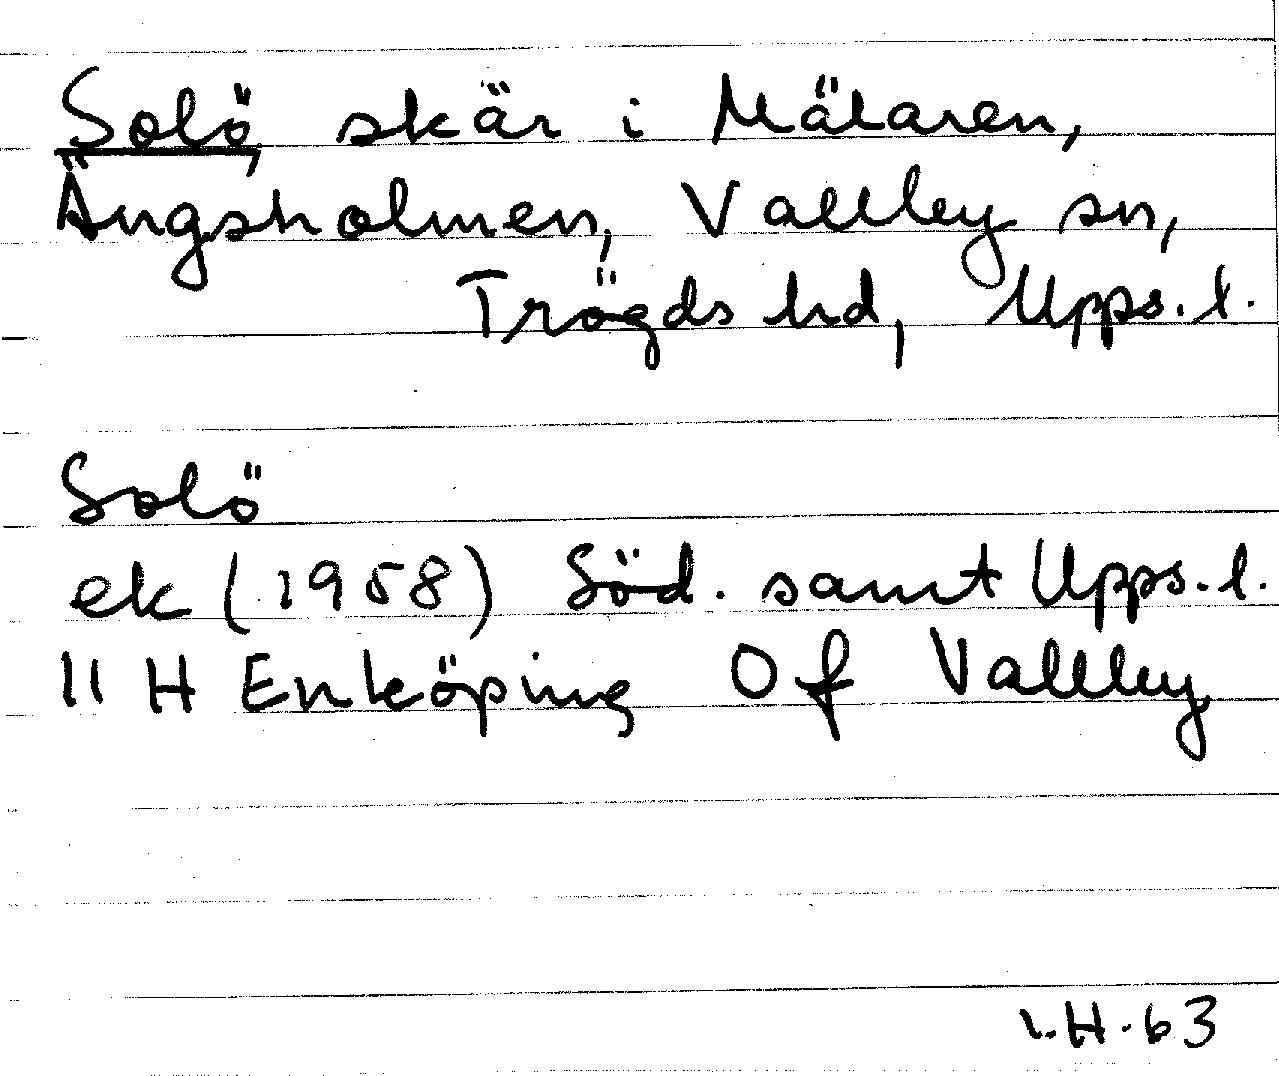 Solö, skär i Mälaren,
Ängsholmen, Vallby sn,
Trögds hd, Upps. l.
Solö
ek (1958) Söd. samt Upps. l.
11 H Enköping 0f Vallby
H. 63